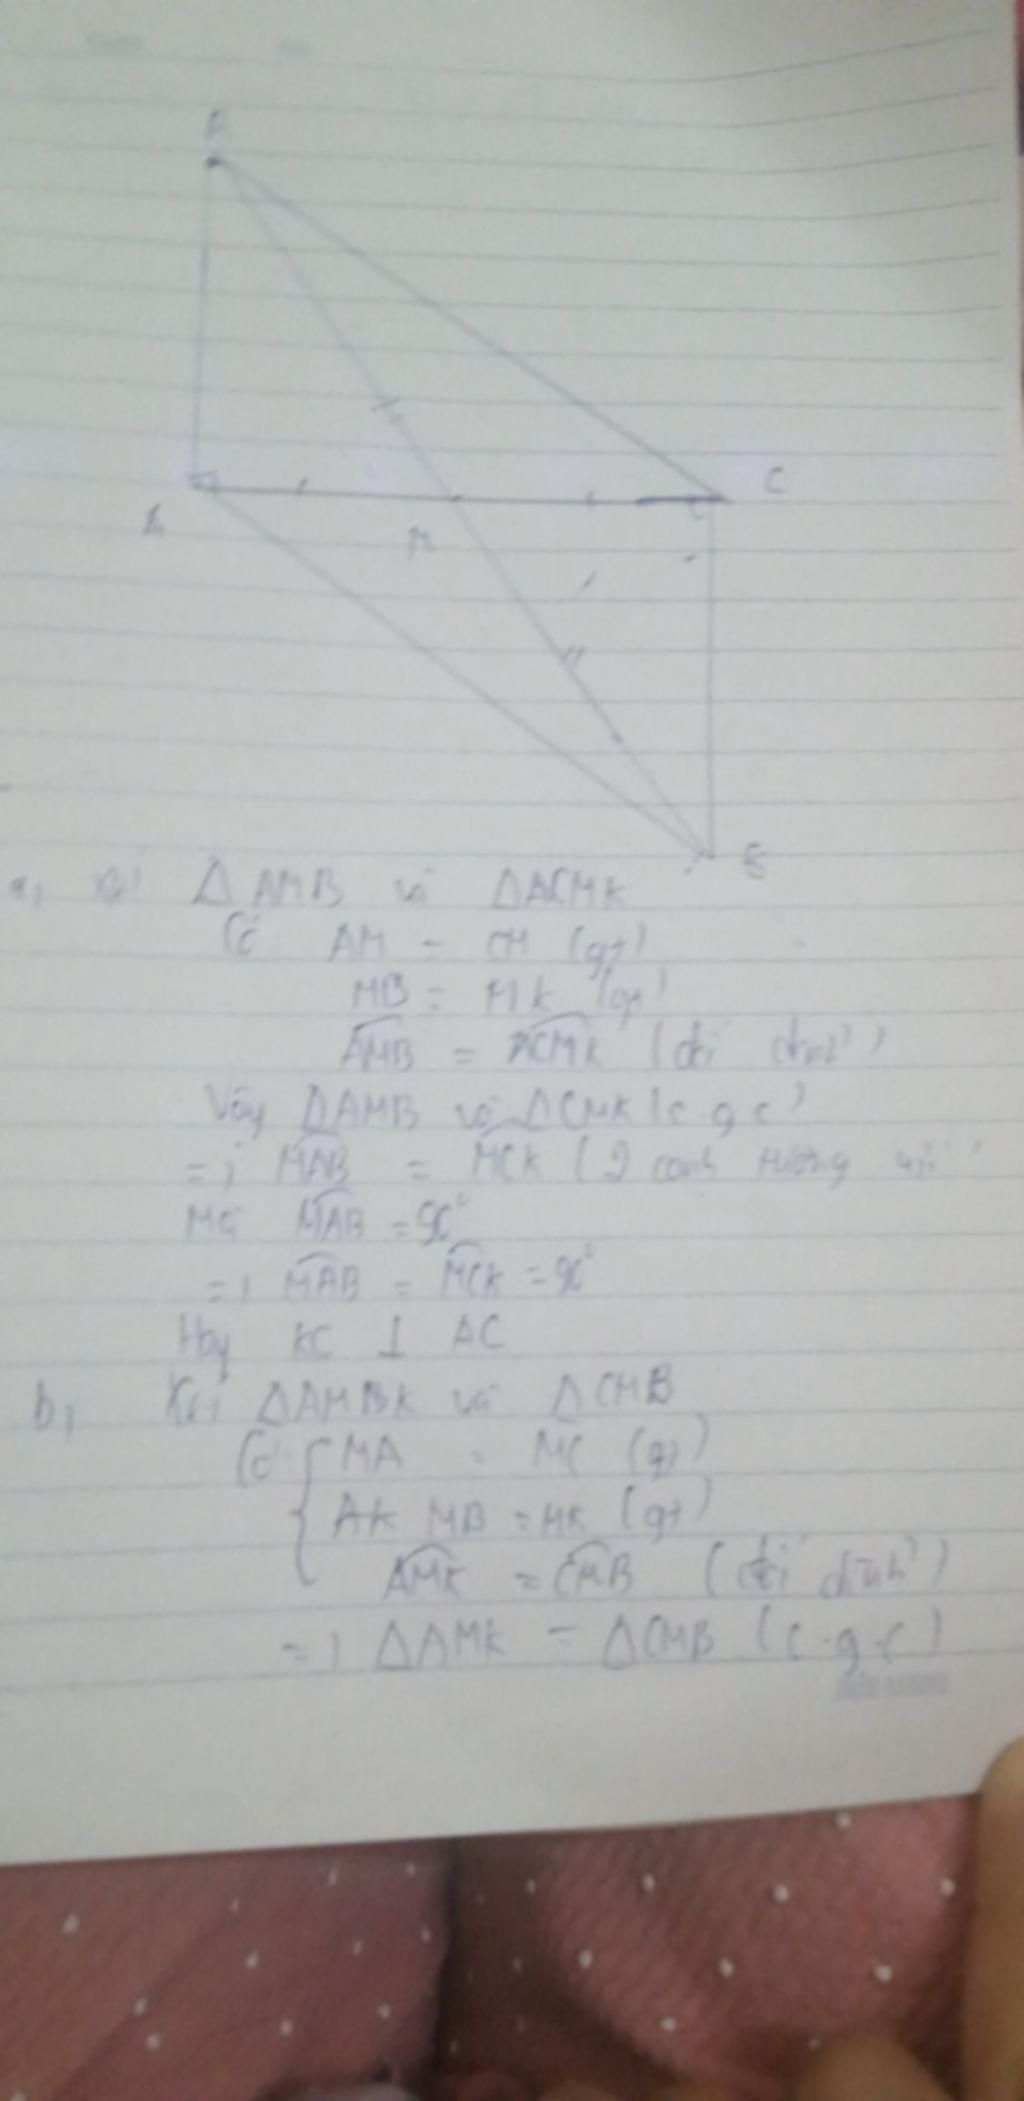 C
A
M
a, Xét ΔAMB và ΔACMK
Có AM = CM (gt)
MB = MK (gt)
AMB = CMK (đối đỉnh)
Vậy ΔAMB và ΔCMK (c.g.c)
=> MAB = MCK (2 cạnh tương ứng
Mà MAB = 90°
=> MAB = MCK = 90°
Hay KC ⊥ AC
b, Xét ΔAMBK và ΔCMB
Có { MA = MC (gt)
AK MB = MK (gt)
AMK = CMB (đối đỉnh)
=> ΔAMK = ΔCMB (c.g.c)